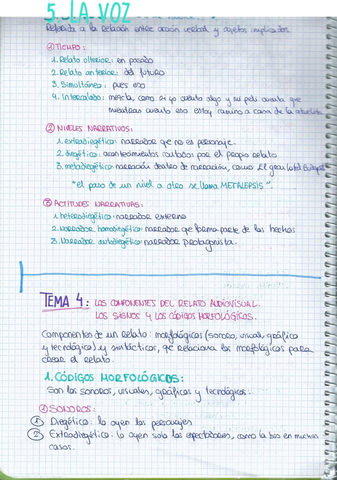 5. LA VOZ
Referida a la relación entre acción verbal y sujetos implicados.
① TIEMPO:
1. Relato ulterior: en pasado
2. Relato anterior: del futuro
3. Simultáneo: pues eso
4. Intercalado: mezcla, como si yo cuento algo y mi peli cuenta que
mientras cuento eso estoy camino a casa de la
② NIVELES NARRATIVOS:
1. extradiegético: narrador que no es personaje.
2. diegético: acontecimientos contados por el propio relato.
3. metadiegético: narración dentro de narración, como El gran hotel Budapest
"el paso de un nivel a otro se llama METALEPSIS".
③ ACTITUDES NARRATIVAS:
1. heterodiegético: narrador externo
2. Narrador homodiegético: narrador que forma parte de los hechos
3. Narrador autodiegético: narrador protagonista.
TEMA 4: LOS COMPONENTES DEL RELATO AUDIOVISUAL.
LOS SIGNOS Y LOS CÓDIGOS MORFOLÓGICOS.
Componentes de un relato: morfológicos (sonoro, visual, gráfico
y tecnológico) y sintácticos, qe relaciona los morfológicos para
crear el relato.
1. CÓDIGOS MORFOLÓGICOS:
Son los sonoros, visuales, gráficos y tecnológicos.
① SONOROS:
① Diegético: lo oyen los personajes
② Extradiegético: lo oyen solo los espectadores, como la bso en muchos
casos.